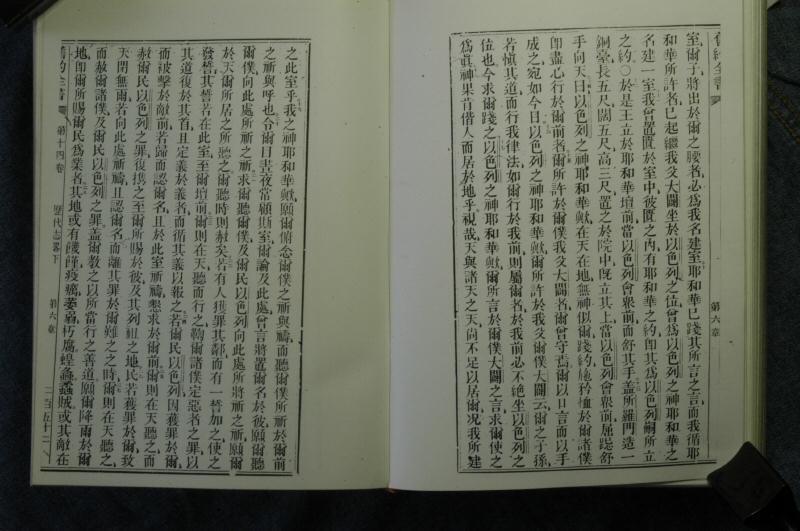 舊約全書 第六章
室爾子將出於爾之腰者必爲我名建室耶和華已踐其所言之言而我循耶
和華所許者已起繼我父大闢坐於以色列之位曾爲以色列之神耶和華之
名建一室我曾置匱於室中彼匱之內有耶和華之約卽其爲以色列嗣所立
之約〇於是王立於耶和華壇前當以色列會衆前而舒其手蓋所羅門造一
銅臺長五尺闊五尺高三尺置之於院中旣立其上當以色列會衆前屈跽舒
手向天曰以色列之神耶和華歟在天在地無神似爾踐約施矜恤於爾諸僕
卽盡心行於爾前者爾所許於爾僕我父大闢者爾曾守焉爾以口言而以手
成之宛如今日以色列之神耶和華歟爾所許於我父爾僕大闢云爾之子孫
若愼其道而行我律法如爾行於我前則屬爾者於我前必不絕坐以色列之
位也今求爾踐之以色列之神耶和華歟爾所言於爾僕大闢之言求爾使之
爲眞神果肯偕人而居於地乎視哉天與諸天之天尚不足以居爾况我所建
之此室乎我之神耶和華歟願爾俯念爾僕之祈與禱而聽爾僕所祈於爾前
之祈與呼也令爾目晝夜常顧斯室爾諭及此處曾言將置爾名於彼願爾聽
爾僕向此處所祈之祈求爾聽爾僕及爾民以色列向此處所將祈之祈願爾
於天爾所居之所聽之聽時則赦矣若有人獲罪其鄰而有一誓加之使之
發誓其誓若在此室至爾壇前爾則在天聽而行之鞫爾諸僕定惡者之罪以
其道復於其首且定義於義者而循其義以報之若爾民以色列因獲罪於爾
而被擊於敵前若歸而認爾名且於此室祈禱懇求於爾前爾則在天聽之而
赦爾民以色列之罪復擕之至爾所賜於彼及其列祖之地民若獲罪於爾致
天閉無雨若向此處祈禱且認爾名而離其罪於爾難之之時爾則在天聽之
而赦爾諸僕及爾民以色列之罪蓋爾教之以所當行之善道願爾降雨於爾
地卽爾所賜爾民爲業者其地或有饑饉疫癘萎弱朽腐蝗螽蟊賊或其敵在
舊約全書 第十四卷 歷代志畧下 第六章 二百五十二